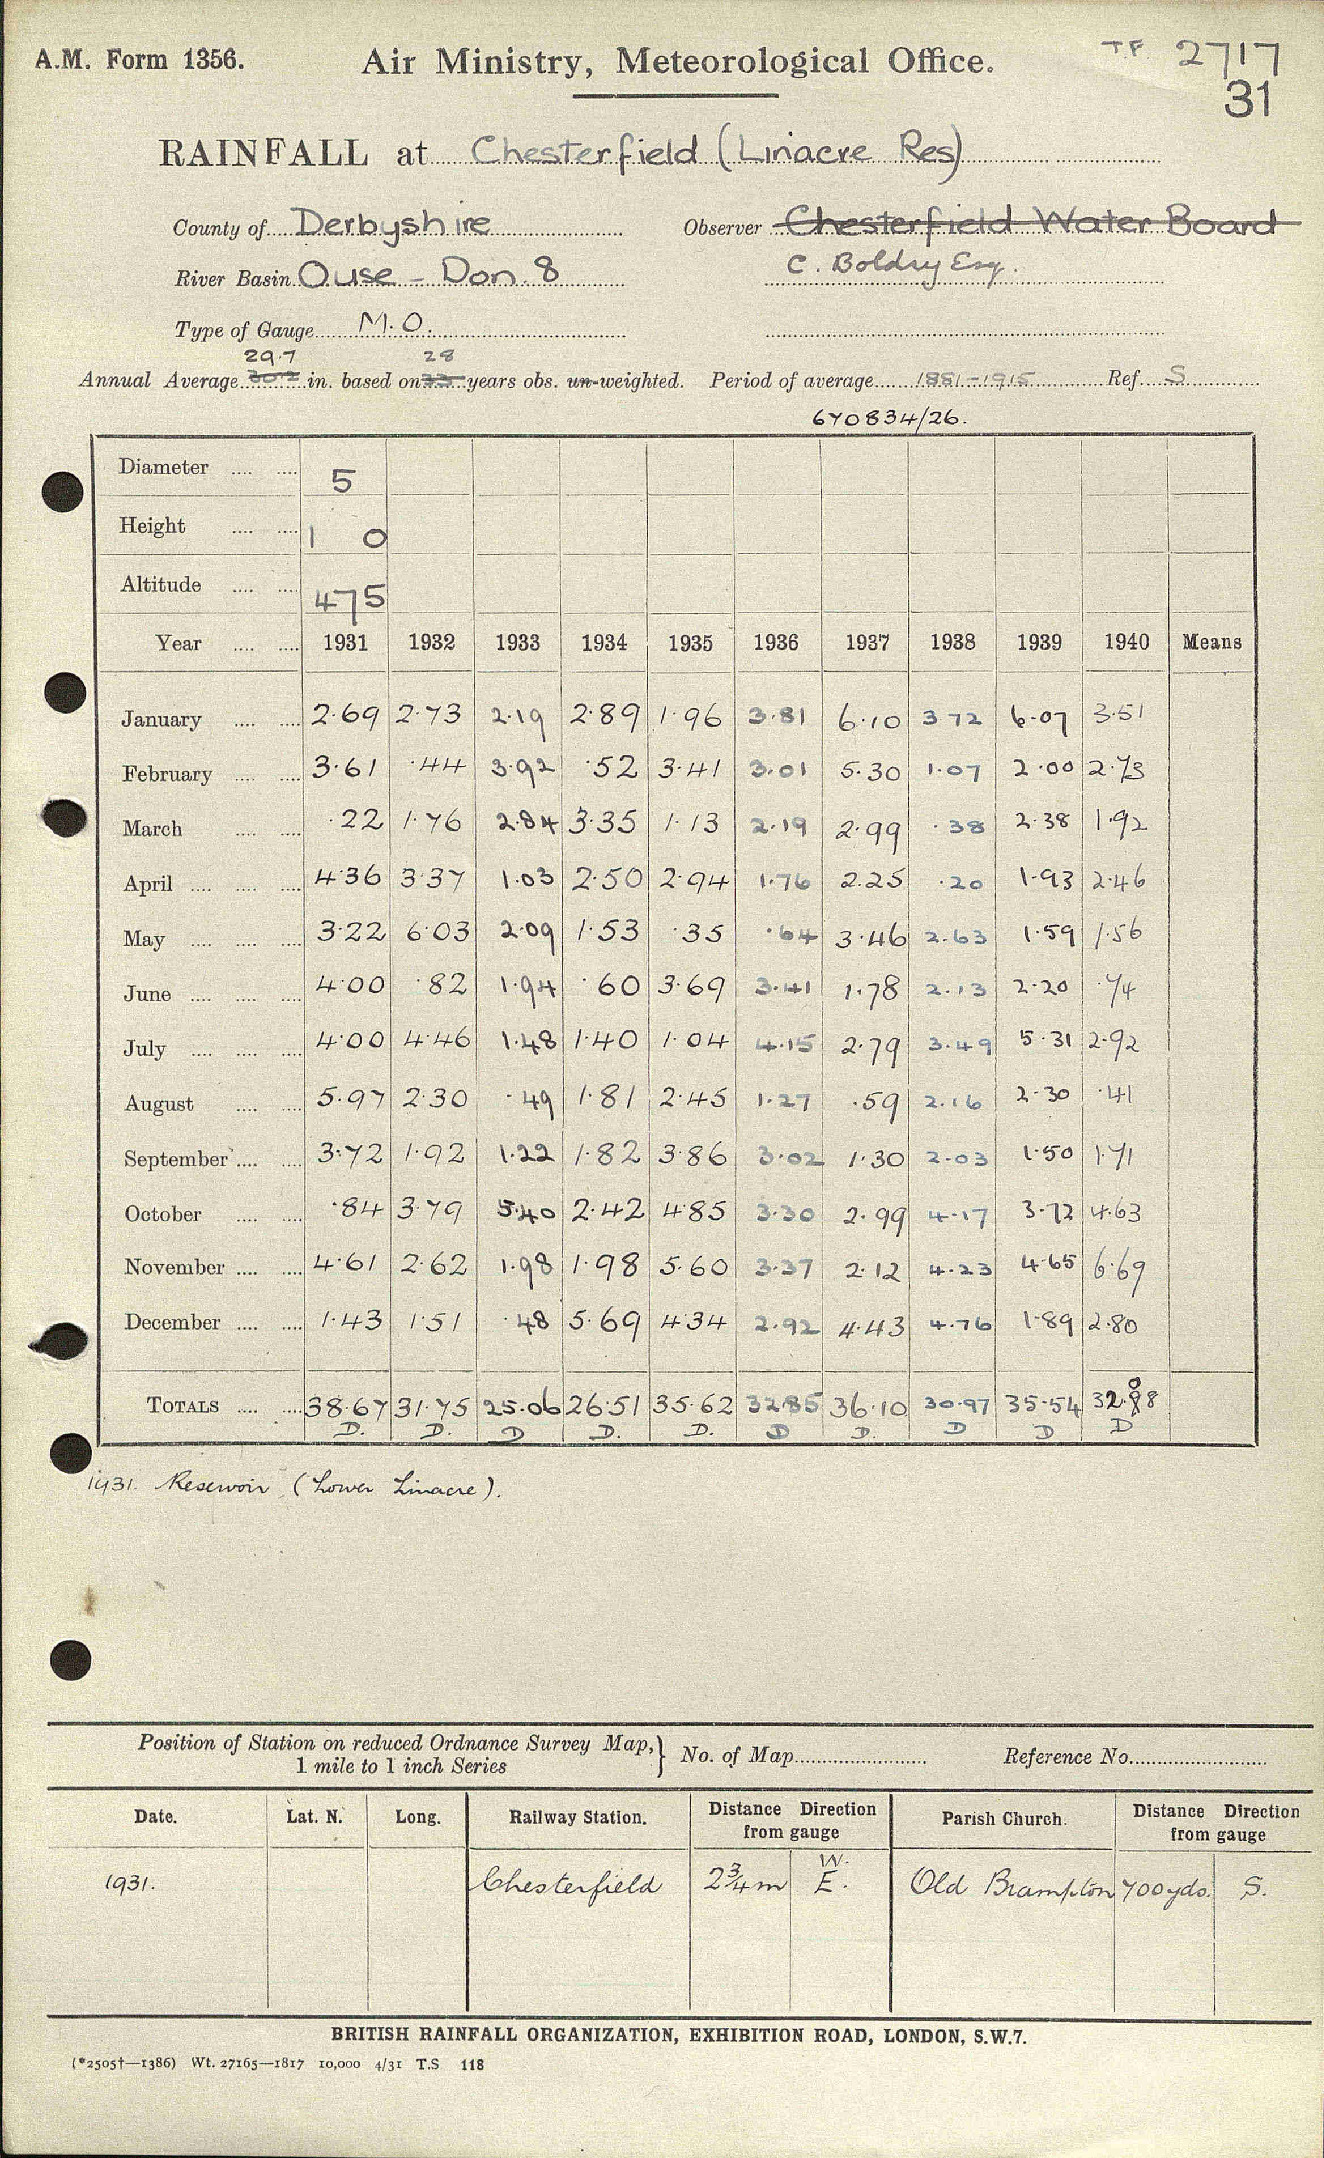 A.M. Form 1356.
Air Ministry, Meteorological Office.
T.F. 2717
31
RAINFALL at Chesterfield (Linacre Res)
County of Derbyshire Observer Chesterfield Water Board
River Basin Ouse - Don. 8 C. Boldry Esq.
Type of Gauge M.O.
29.7 28
Annual Average in. based on years obs. un-weighted. Period of average 1881-1915 Ref. S
670834/26.
Diameter 5
Height 1 0
Altitude 475
Year 1931 1932 1933 1934 1935 1936 1937 1938 1939 1940 Means
January 2.69 2.73 2.19 2.89 1.96 3.81 6.10 3.72 6.07 3.51
February 3.61 .44 3.92 .52 3.41 3.01 5.30 1.07 2.00 2.73
March .22 1.76 2.84 3.35 1.13 2.19 2.99 .38 2.38 1.92
April 4.36 3.37 1.03 2.50 2.94 1.76 2.25 .20 1.93 2.46
May 3.22 6.03 2.09 1.53 .35 .64 3.46 2.63 1.59 1.56
June 4.00 .82 1.94 .60 3.69 3.41 1.78 2.13 2.20 .74
July 4.00 4.46 1.48 1.40 1.04 4.15 2.79 3.49 5.31 2.92
August 5.97 2.30 .49 1.81 2.45 1.27 .59 2.16 2.30 .41
September 3.72 1.92 1.22 1.82 3.86 3.02 1.30 2.03 1.50 1.71
October .84 3.79 5.40 2.42 4.85 3.30 2.99 4.17 3.72 4.63
November 4.61 2.62 1.98 1.98 5.60 3.37 2.12 4.23 4.65 6.69
December 1.43 1.51 .48 5.69 4.34 2.92 4.43 4.76 1.89 2.80
TOTALS 38.67 31.75 25.06 26.51 35.62 32.85 36.10 30.97 35.54 32.08
D. D. D D. D. D D. D D D
1931. Reservoir (Lower Linacre).
Position of Station on reduced Ordnance Survey Map, 1 mile to 1 inch Series } No. of Map Reference No.
Date. Lat. N. Long. Railway Station. Distance Direction from gauge Parish Church. Distance Direction from gauge
1931. Chesterfield 2 3/4 m W. E. Old Brampton 700 yds. S.
BRITISH RAINFALL ORGANIZATION, EXHIBITION ROAD, LONDON, S.W.7.
(*2505†—1386) Wt. 27165—1817 10,000 4/31 T.S 118